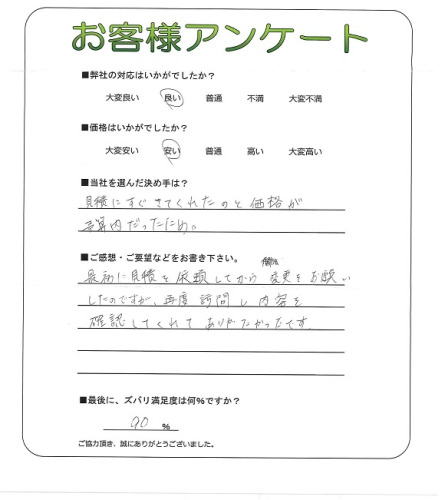 お客様アンケート
■弊社の対応はいかがでしたか？
大変良い 良い 普通 不満 大変不満
■価格はいかがでしたか？
大変安い 安い 普通 高い 大変高い
■当社を選んだ決め手は？
見積にすぐきてくれたのと価格が
予算内だったため。
■ご感想・ご要望などをお書き下さい。
最初に見積を依頼してから 変更をお願い
したのですが、再度訪問し内容を
確認してくれてありがたかったです
■最後に、ズバリ満足度は何%ですか？
90 %
ご協力頂き、誠にありがとうございました。